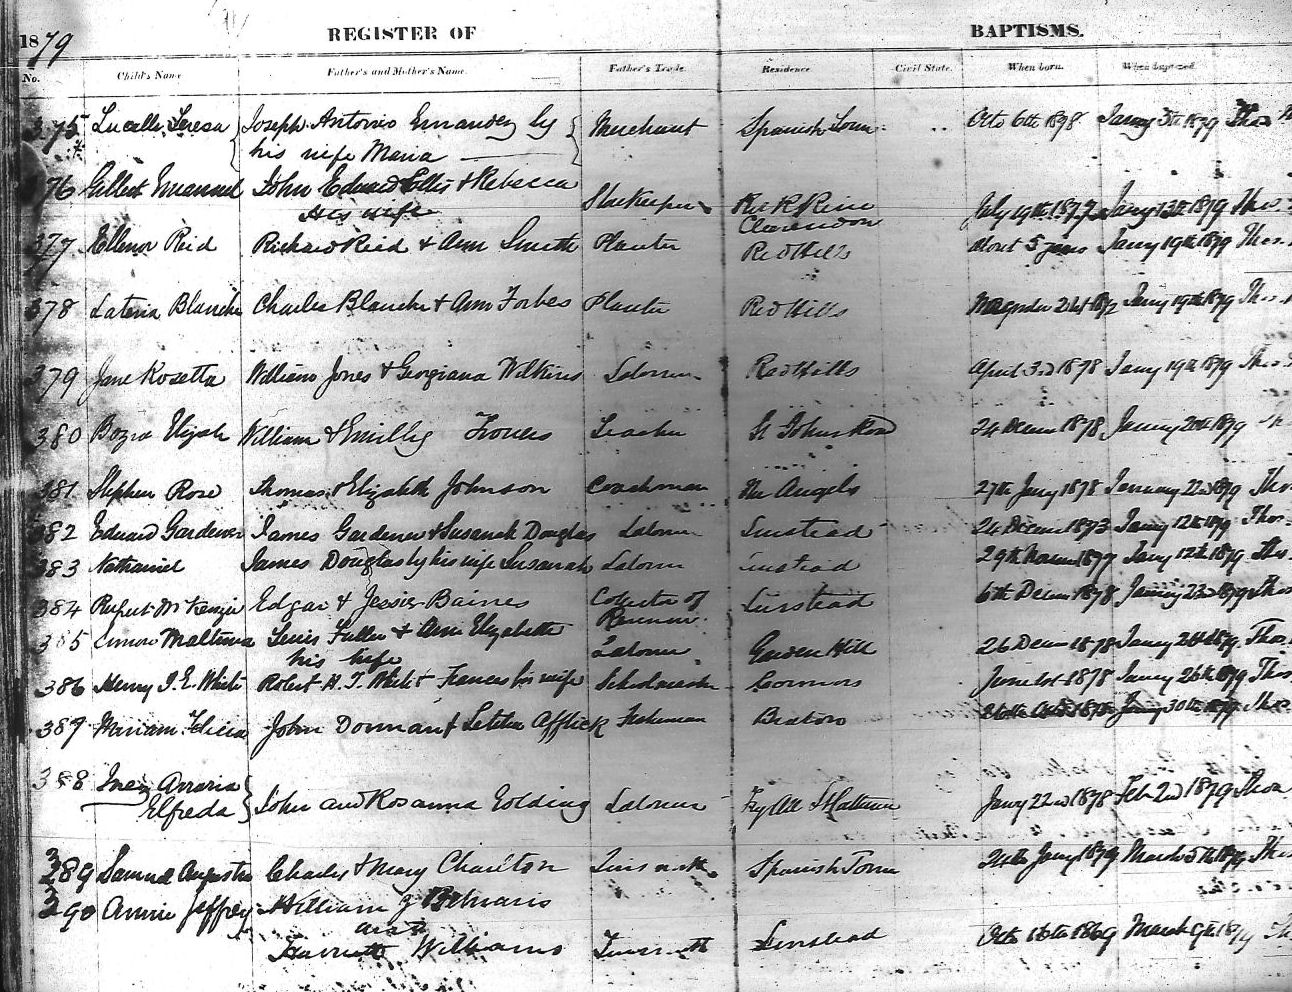 1879
REGISTER OF BAPTISMS.
No. Child's Name Father's and Mother's Name. Father's Trade. Residence Civil State. When born. When baptized.
375 Lucille Teresa Joseph Antonio Ernandez by Merchant Spanish Town Octo 6th 1878 Jany 5th 1879 Thos
his wife Maria
76 Gilbert Emanuel John Edward Collis & Rebecca
His wife Storekeeper July 19th 1877 Jany 13th 1879 Thos
Clarendon
377 Ellenor Reid Richard Reid & Ann Smith Planter Red Hills about 5 years Jany 19th 1879 Thos.
378 Blanche Charles Blanche & Ann Forbes Planter Red Hills Jany 19th 1879 Thos.
379 Jane Rosetta William Jones & Georgiana Wilkins Laborer Red Hills April 3rd 1878 Jany 19th 1879 Thos
380 Elijah William & Emilly Teacher St Johns Road 24 Decem 1878 January 20th 1879
381 Stephen Rose Thomas & Elizabeth Johnson Coachman The Angels 27th Jany 1878 January 22nd 1879 Thos
382 Edward Gardener James Gardener & Susanah Douglas Laborer Linstead 24 Decem 1873 Jany 12th 1879 Thos
383 Nathaniel James Douglas by his wife Susanah Laborer Linstead 1877 Jany 12th 1879 Thos
384 Rupert McKenzie Edgar & Jessie Baines Collector of Linstead 6th Decem 1878 Thos
Revenue.
385 Lewis Fuller & Ann Elizabeth Laborer Garden Hill 26 Decem 1878 Thos
his wife
386 Henry J. E. White Robert H. T. White & Frances his wife Schoolmaster June 1st 1878 Jany 26th 1879 Thos
387 Miriam Felicia John Dorman & Letitia Afflick Fisherman 30th Thos
388 Inez
Elfreda John and Rosanna Golding Laborer Jany 22nd 1878 Feb 2nd 1879 Thos
389 Samuel Augustus Charles & Mary Charlton Spanish Town 24th Jany 1879 March 5th 1879 Thos
390 Annie Jeffrey William
and
Harriett Williams Linstead Octo 16th 1869 March 9th 1879